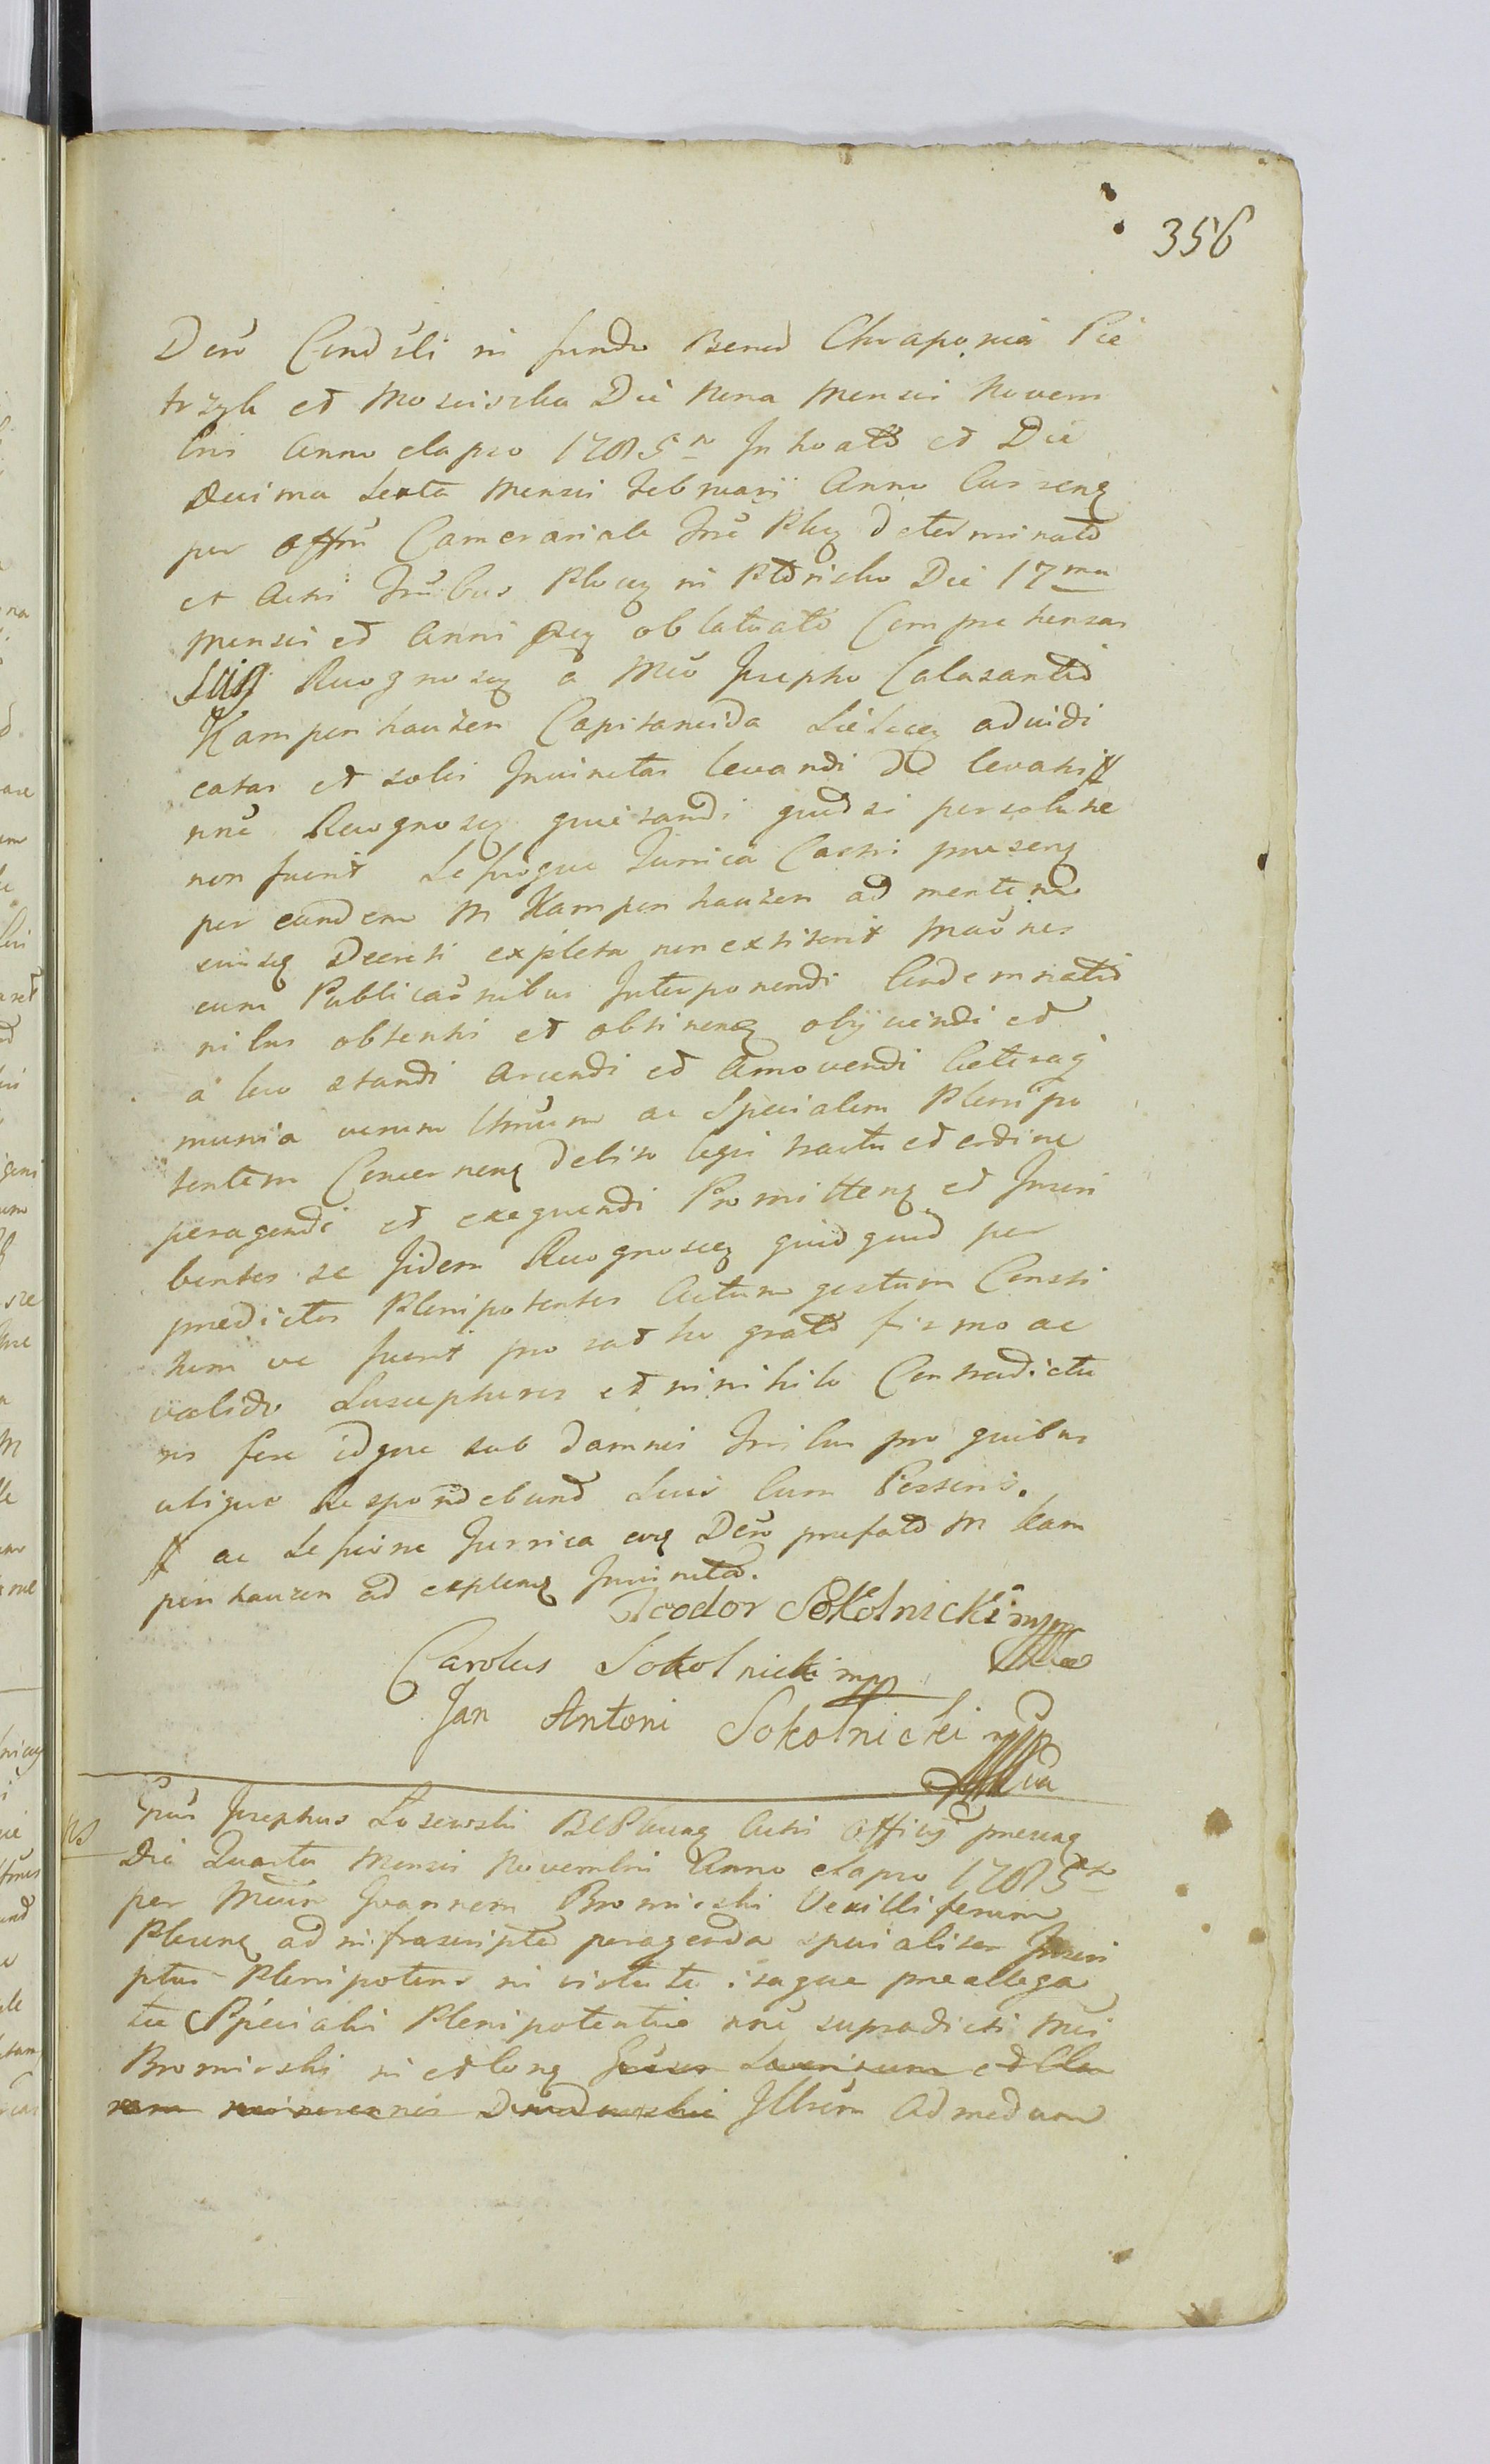 356
Decō Conduli in fundo Bonoꝝ Chraponia Pie
trzyk et Mosciska Die Nona Mensis Novem
bris Anno elapso 1785to Inhoatō et Die
Decima Sexta Mensis Februarij Anno Currenꝝ
per offm̄ Camerariale Trrē Plocꝝ determinatō
et Actis Trribus Plocꝝ in Płońsko Die 17ma
Mensis et Anni oblatuatō Comprehensas
Recognoscꝝ a Mcō Josepho Calasantio
Kampenhauzen Capitaneida advidi
catas et solvi Iniunctas levandi de levatis #
nnē Recognoscꝝ quietandi quodsi persolutæ
non fuerit Lesioque Juruica Castri præsenꝝ
per eundem M Kampenhauzen ad mentem
eiusꝝ Decreti expleta non extiterit
cum Publicaōnibus Interponendi Condemnatio
nibus obtentis et obtinenꝝ objiciendi et
a loco standi Arcendi et Amovendi Ceteraꝙ
munia verum Unum ac Specialem Plenipo
tentem Concernenꝝ debito legis tractu et ordine
peragendi et exequendi Promittenꝝ et Inscri
bentes se Iidem Recognoscꝝ quidquid per
prædictos Plenipotentes Actum gestum Consti
tum ve fuerit pro rattho gratō firmo ac
valido Suscepturos et in nihilo Contradictu
ros fore idque sub damnis Trribus pro quibus
ubique Respondebunt Suis Cum Bessoris.
# ac Lesione Jurrica Decō præfatō M Kam
penhauzen ad explenꝝ Iniuncta.
Teodor Sokolnicki mpp
Carolus Sokolnicki mpp
Jan Antoni Sokolnicki mpp
Gnus Josephus Lisewski Actis Officij præsenꝝ
Die Quarta Mensis Novembris Anno elapso 1785to
per Mcum Joannem Bromirski Vexilliferum
Plocenꝝ ad infrascripta peragenda specialiter Inscri
ptus Plenipotens in virtute itaque præallega
tæ Specialis Plenipotentiæ nnē supradicti Mci
Bromirski in et
Illrum Admodum